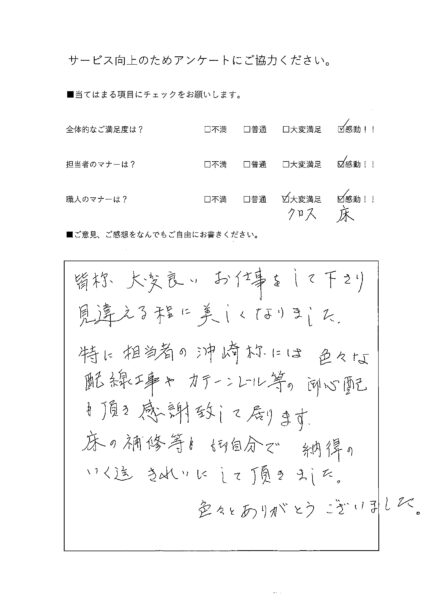 サービス向上のためアンケートにご協力ください。
■当てはまる項目にチェックをお願いします。
全体的なご満足度は？ □不満 □普通 □大変満足 ☑感動！！
担当者のマナーは？ □不満 □普通 □大変満足 ☑感動！！
職人のマナーは？ □不満 □普通 ☑大変満足 ☑感動！！
クロス 床
■ご意見、ご感想をなんでもご自由にお書きください。
皆称 大変良い お仕事をして下さり
見違える程に美しくなりました。
特に担当者の沖崎称には 色々な
配線工事や カーテンレール等の 御心配
も頂き感謝致して居ります。
床の補修等も 御自分で 納得の
いく迄 きれいにして頂きました。
色々とありがとうございました。